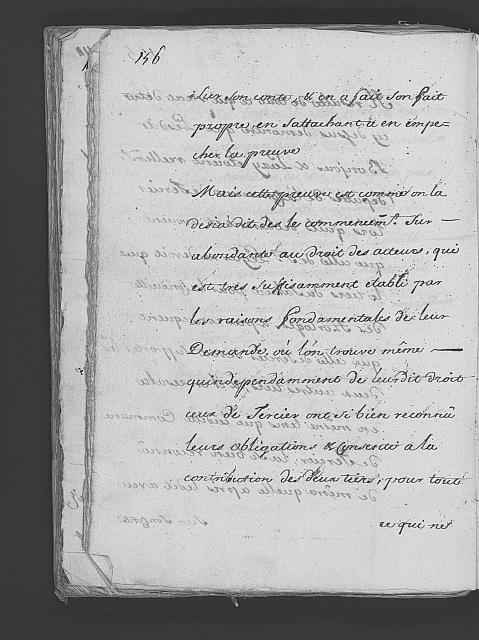 156
Sur son conte, & en a fait son fait
propre, en sattachant à en empe=
cher la preuve
Mais cette preuve est comme on la
desia dit des le commencemt. Sur —
abondante au droit des acteurs, qui
est tres suffisamment établi par
les raisons fondamentales de leur
Demande, où l'on trouve même —
quindependamment de leurdit droit
ceux de Tercier ont si bien reconnû
leurs obligations & consenti à la
contribution des deux tiers, pour tout
ce qui net